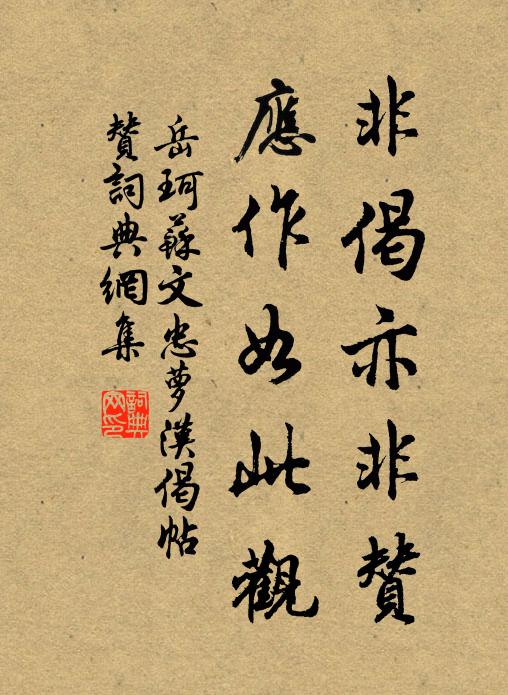 非偈亦非贊
應作如此觀
岳珂蘇文忠夢漢偈帖
贊詞典網集
詞典網印